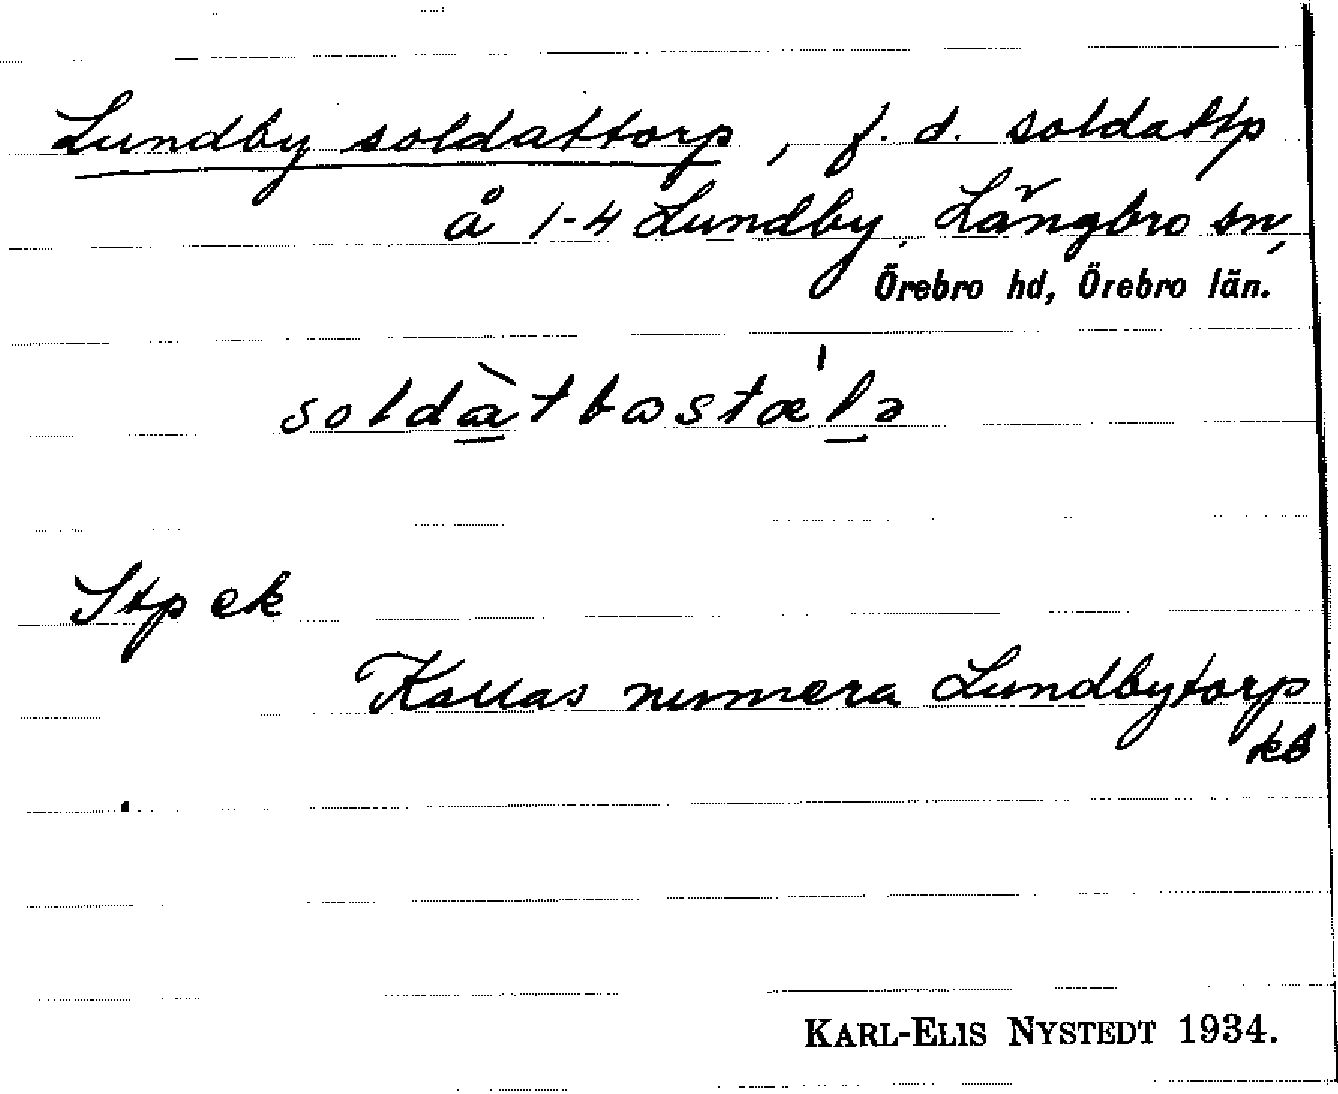 Lundby soldattorp, f. d. soldattp
å 1-4 Lundby, Långbro sn,
Örebro hd, Örebro län.
soldàtbəstæ̍lə
Stp ek
Kallas numera Lundbytorp
kb
KARL-ELIS NYSTEDT 1934.